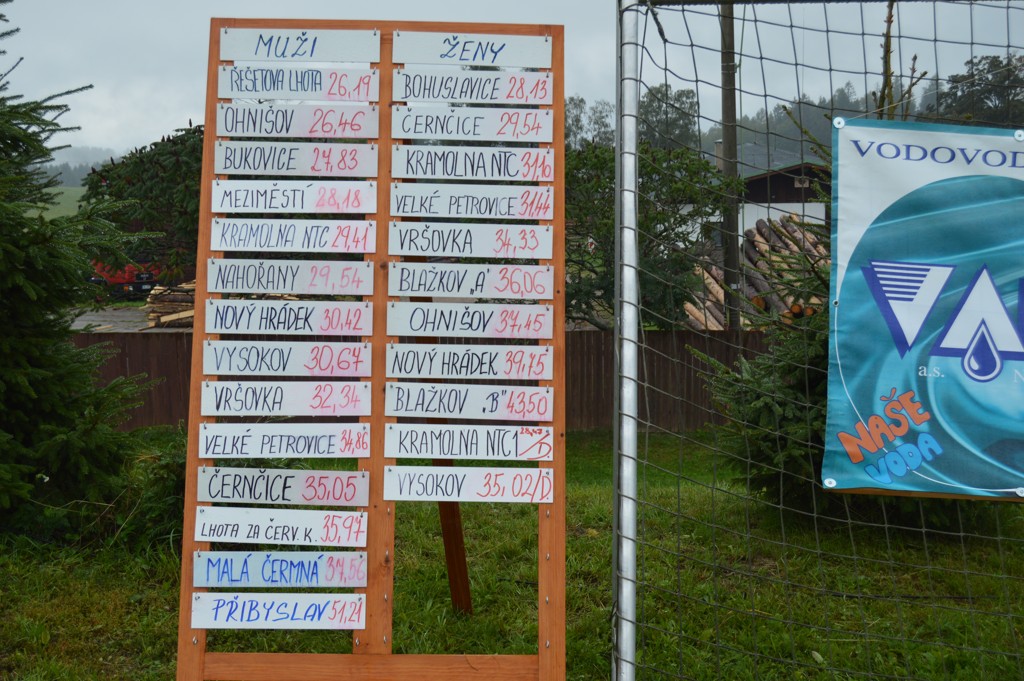 MUŽI
ŘEŠETOVA LHOTA 26,19
OHNIŠOV 26,46
BUKOVICE 27,83
MEZIMĚSTÍ 28,18
KRAMOLNA NTC 29,41
NAHOŘANY 29,54
NOVÝ HRÁDEK 30,42
VYSOKOV 30,67
VRŠOVKA 32,34
VELKÉ PETROVICE 34,86
ČERNČICE 35,05
LHOTA ZA ČERV. K. 35,97
MALÁ ČERMNÁ 37,56
PŘIBYSLAV 51,21
ŽENY
BOHUSLAVICE 28,13
ČERNČICE 29,54
KRAMOLNA NTC 31,16
VELKÉ PETROVICE 31,44
VRŠOVKA 34,33
BLAŽKOV „A" 36,06
OHNIŠOV 37,45
NOVÝ HRÁDEK 39,75
BLAŽKOV „B" 43,50
KRAMOLNA NTC1 /D.
VYSOKOV 35,02/D.
a.s.
NAŠE
VODA